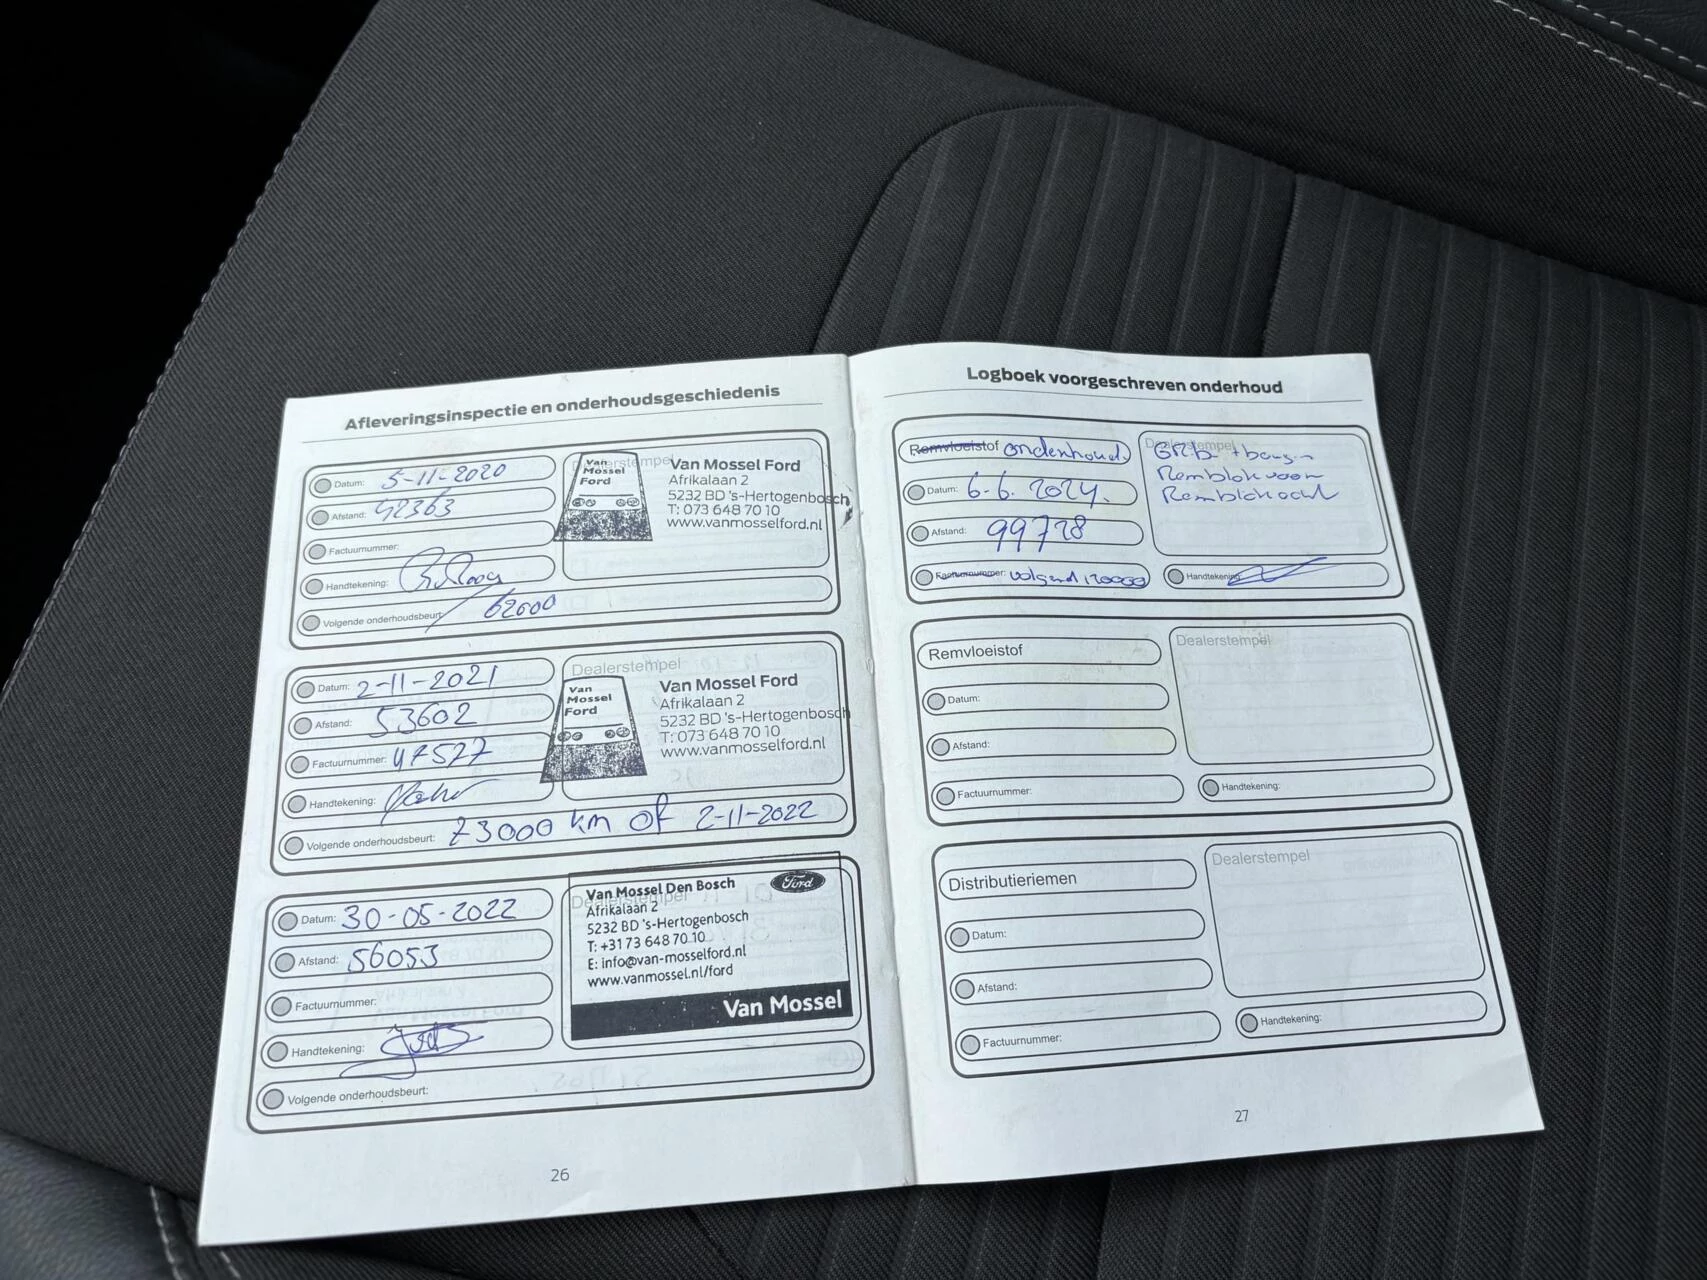 Afleveringsinspectie en onderhoudsgeschiedenis
Datum: 5-11-2020
Afstand: 42363
Factuurnummer:
Handtekening:
Volgende onderhoudsbeurt: 62000
Dealerstempel
Van Mossel Ford
Van Mossel Ford
Afrikalaan 2
5232 BD 's-Hertogenbosch
T: 073 648 70 10
www.vanmosselford.nl
Datum: 2-11-2021
Afstand: 53602
Factuurnummer: 47527
Handtekening:
Volgende onderhoudsbeurt: 73000 km of 2-11-2022
Dealerstempel
Van
Mossel
Ford
Van Mossel Ford
Afrikalaan 2
5232 BD 's-Hertogenbosch
T: 073 648 70 10
www.vanmosselford.nl
Datum: 30-05-2022
Afstand: 56053
Factuurnummer:
Handtekening:
Volgende onderhoudsbeurt:
Dealerstempel
Ford
Van Mossel Den Bosch
Afrikalaan 2
5232 BD 's-Hertogenbosch
T: +31 73 648 70 10
E: info@van-mosselford.nl
www.vanmossel.nl/ford
Van Mossel
26
Logboek voorgeschreven onderhoud
Remvloeistof onderhoud.
Datum: 6-6-2024.
Afstand: 99728
Factuurnummer: volgend 120000
Dealerstempel
Remblok voor
Handtekening:
Remvloeistof
Datum:
Afstand:
Factuurnummer:
Dealerstempel
Handtekening:
Distributieriemen
Datum:
Afstand:
Factuurnummer:
Dealerstempel
Handtekening:
27